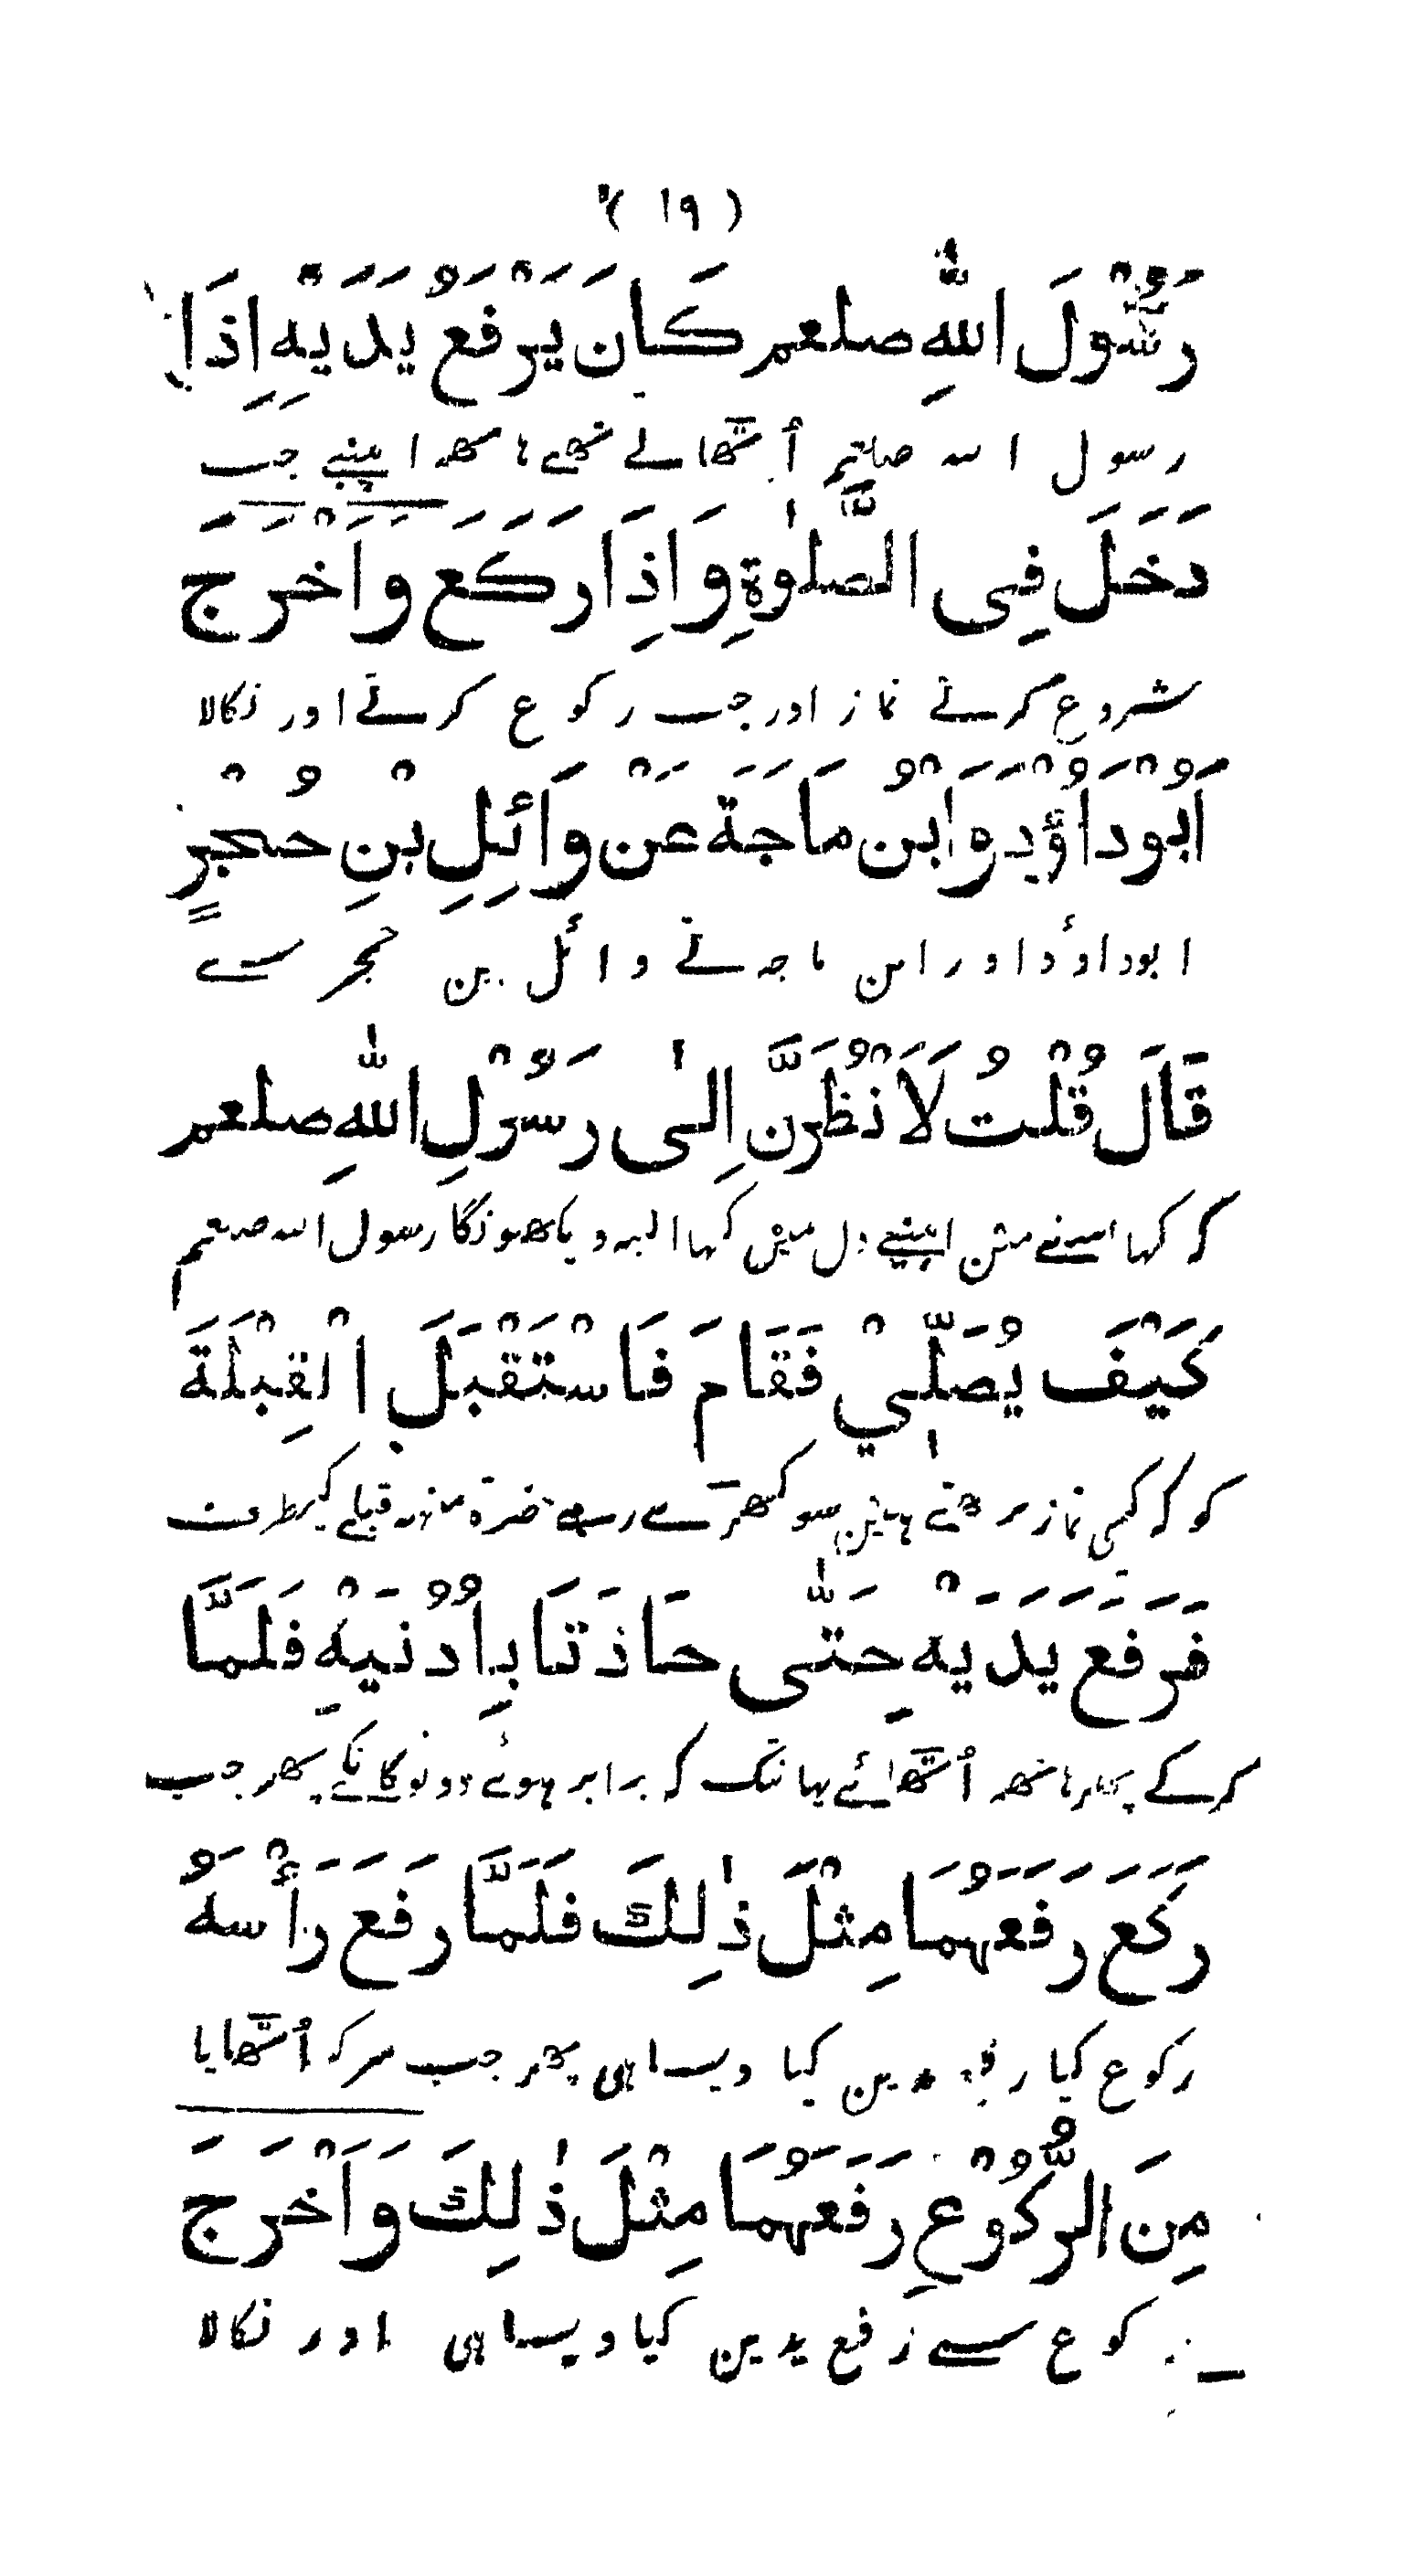 ( ١٩ )
رَسُوْلَ اللّٰهِ صلعم كَانَ يَرْفَعُ يَدَيْهِ اِذَا
رسول اسہ صلعم اُٹھاتے تھے ہاتھہ اپنے جب
دَخَلَ فِى الصَّلٰوةِ وَاِذَا رَكَعَ وَاَخْرَجَ
شروع کرتے نماز اور جب رکوع کرتے اور نکالا
اَبُوْدَاوُٗدَ وَابْنُ مَاجَةَ عَنْ وَائِلِ بْنِ حُجْرٍ
ابوداوٗد اور ابن ماجہ نے وائل بن حجر سے
قَالَ قُلْتُ لَاَنْظُرَنَّ اِلٰى رَسُوْلِ اللّٰهِ صلعم
کر کہا اسنے مین اپنے دل میں کہا البہ دیکھونگا رسول اسہ صلعم
كَيْفَ يُصَلِّيْ فَقَامَ فَاسْتَقْبَلَ الْقِبْلَةَ
کو کہ کسی نماز پڑھتے ہین سو کھڑے رہے حضرۃ منہہ قبلے کیطرف
فَرَفَعَ يَدَيْهِ حَتّٰى حَاذَتَا بِاُذُنَيْهِ فَلَمَّا
کرکے پھر ہاتھہ اُٹھائے یہانتک کہ برابر ہوئے دونو کانکے پھر جب
رَكَعَ رَفَعَهُمَا مِثْلَ ذٰلِكَ فَلَمَّا رَفَعَ رَأْسَهُ
رکوع کیا رفع یدین کیا ویساہی پھر جب سر کہ اُٹھایا
مِنَ الرُّكُوْعِ رَفَعَهُمَا مِثْلَ ذٰلِكَ وَاَخْرَجَ
رکوع سے رفع یدین کیا ویساہی اور نکالا